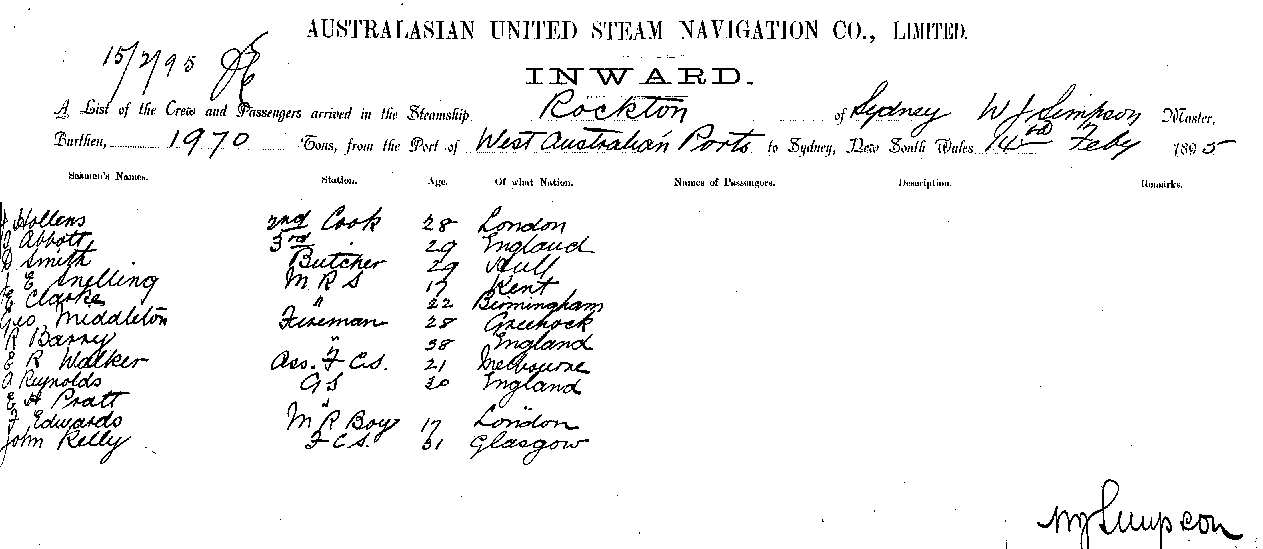 AUSTRALASIAN UNITED STEAM NAVIGATION CO., LIMITED.
15/2/95
INWARD.
A List of the Crew and Passengers arrived in the Steamship Rockton of Sydney W J Simpson Master,
Burthen, 1970 Tons, from the Port of West Australian Ports to Sydney, New South Wales 14th Feby 1895
Seamen's Names. Station. Age. Of what Nation. Names of Passengers. Description. Remarks.
Hollens 2nd Cook 28 London
Abbott 3rd " 29 England
D Smith Butcher 29 Hull
J E Snelling M R S 17 Kent
E Clarke " 22 Birmingham
Geo Middleton Fireman 28 Greenock
R Barry " 38 England
E R Walker Ass. F C S. 21 Melbourne
A Reynolds G S 30 England
E H Pratt "
F Edwards M R Boy 17 London
John Kelly F C S. 31 Glasgow
W J Simpson